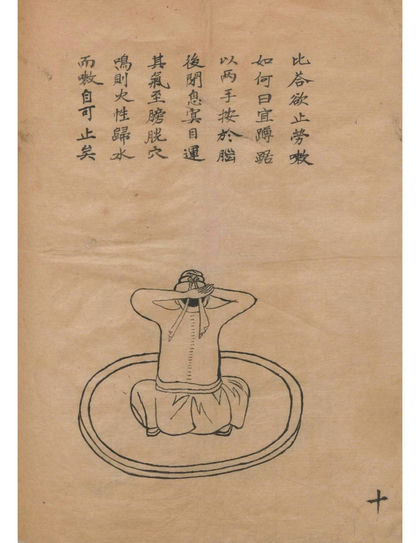 比答欲止勞嗽
如何曰宜蹲踞
以两手按於腦
後閉息㝠目運
其氣至膀胱穴
鳴則火性歸水
而嗽自可止矣
十